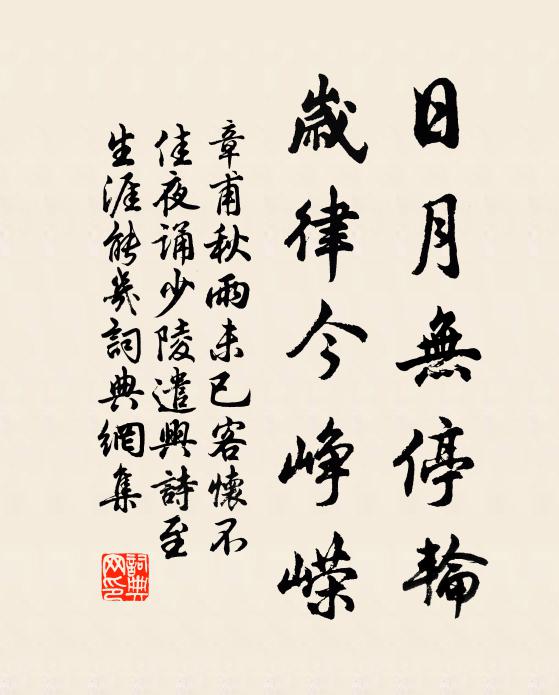 日月無停輪
歲律今崢嶸
章甫秋雨未已客懷不
佳夜誦少陵遣興詩至
生涯能幾詞典網集
詞典
网印